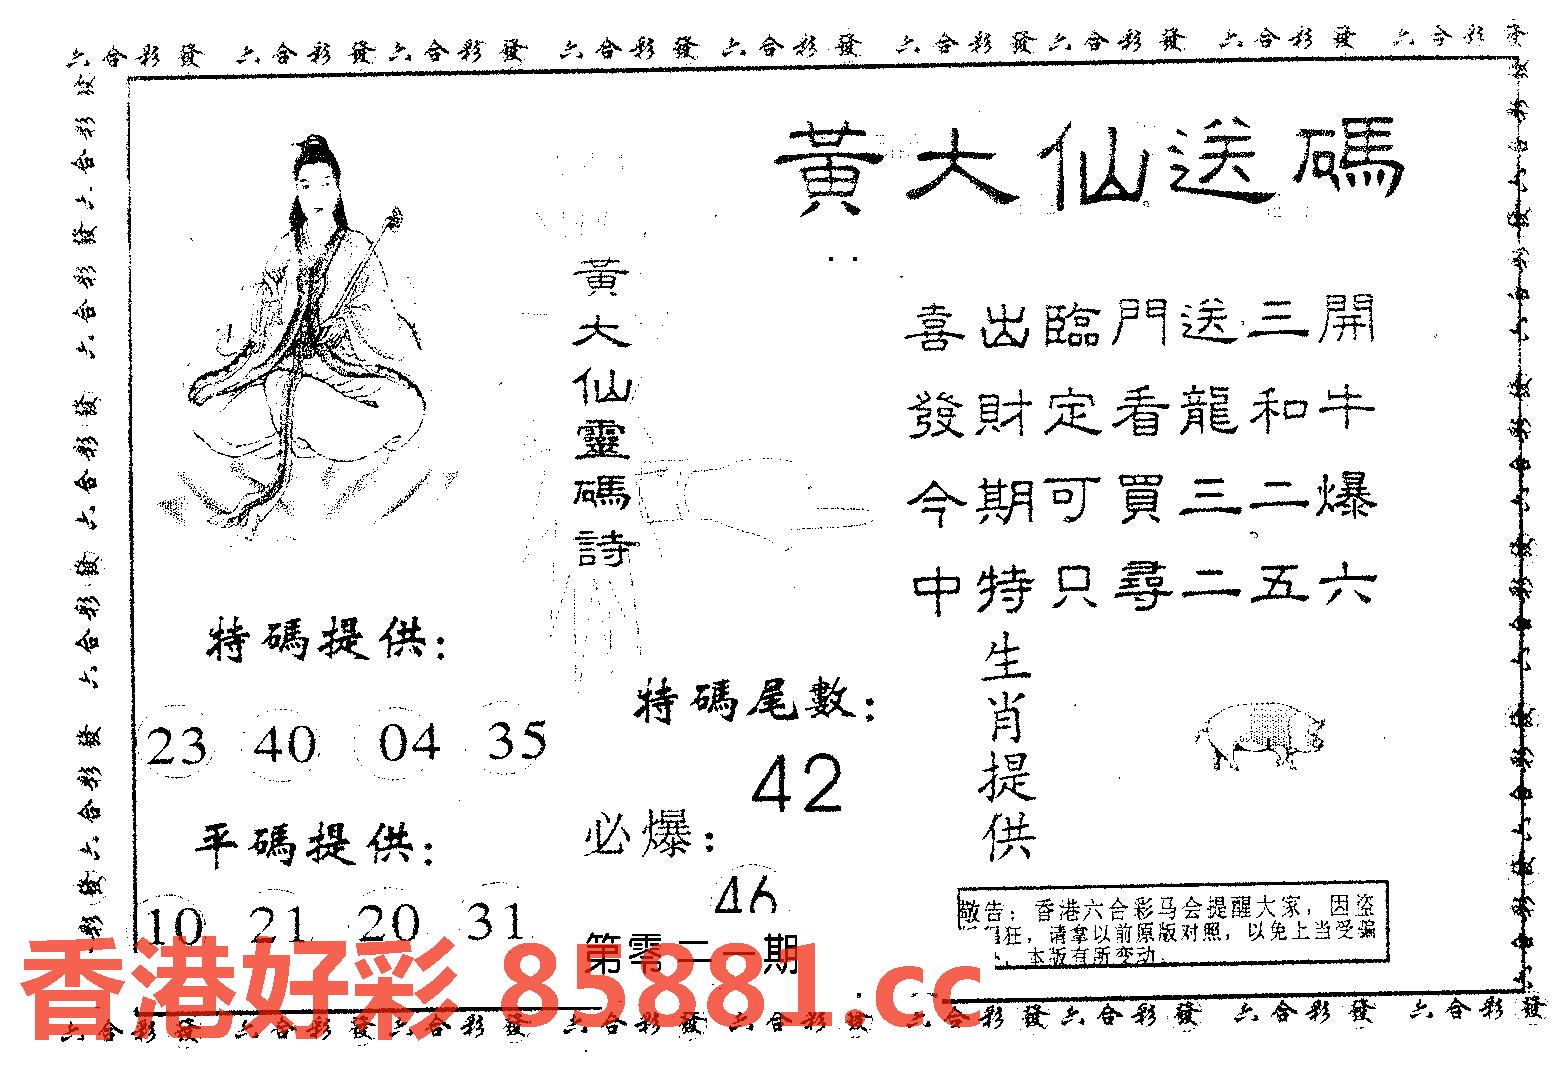 六合彩發 六合彩發 六合彩發 六合彩發 六合彩發 六合彩發 六合彩發 六合彩發 六合彩發
黃大仙送碼
黃大仙靈碼詩
喜出臨門送三開
發財定看龍和牛
今期可買三二爆
中特只尋二五六
特碼提供：
23 40 04 35
平碼提供：
10 21 20 31
特碼尾數：
42
必爆：
46
第零二一期
生肖提供
敬告：香港六合彩马会提醒大家，因盗
狂，请拿以前原版对照，以免上当受骗
本版有所变动
香港好彩 85881.cc
六合彩發 六合彩發 六合彩發 六合彩發 六合彩發 六合彩發 六合彩發 六合彩發 六合彩發